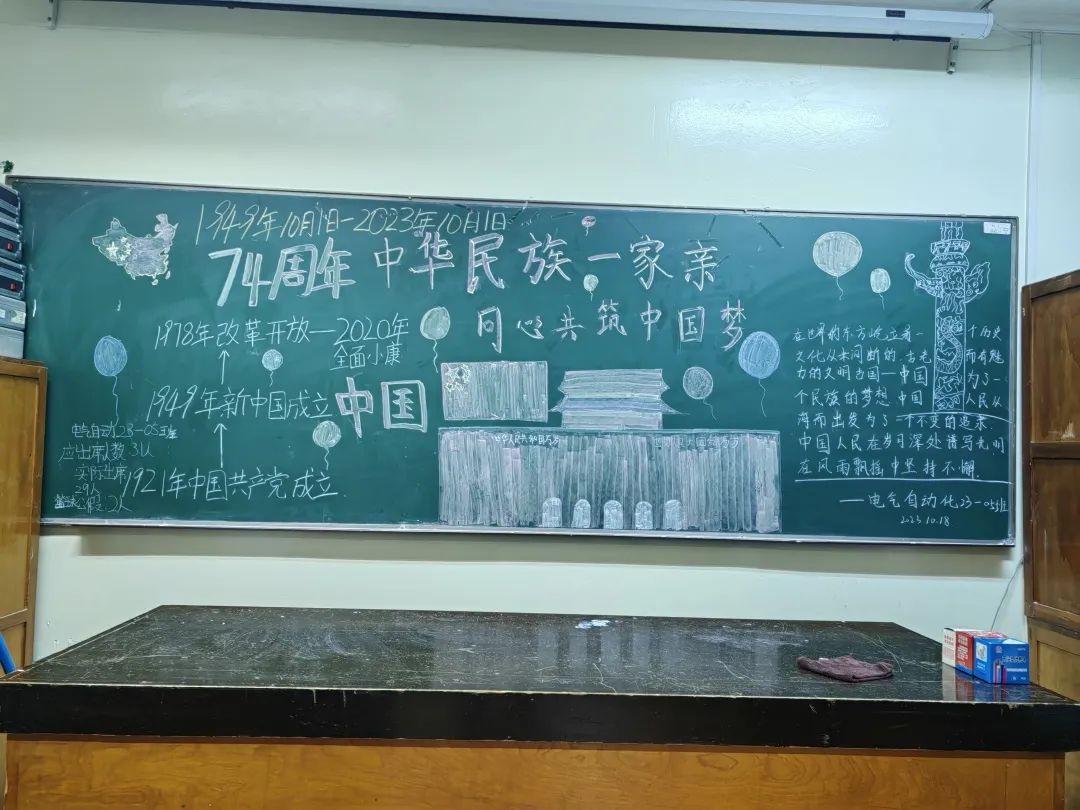 1949年10月1日-2023年10月1日
74周年 中华民族一家亲
同心共筑中国梦
1978年改革开放—2020年
全面小康
1949年新中国成立
中国
1921年中国共产党成立
电气自动23-05班
应出席人数 31人
实际出席
29人
公假 2人
在世界的东方屹立着一个历史
文化从未间断的、古老而有魅
力的文明古国—中国为了一
个民族的梦想 中国人民从
海而出发为了一个不变的追求
中国人民在岁月深处谱写光明
在风雨飘摇中坚持不懈
——电气自动化23-05班
2023.10.18